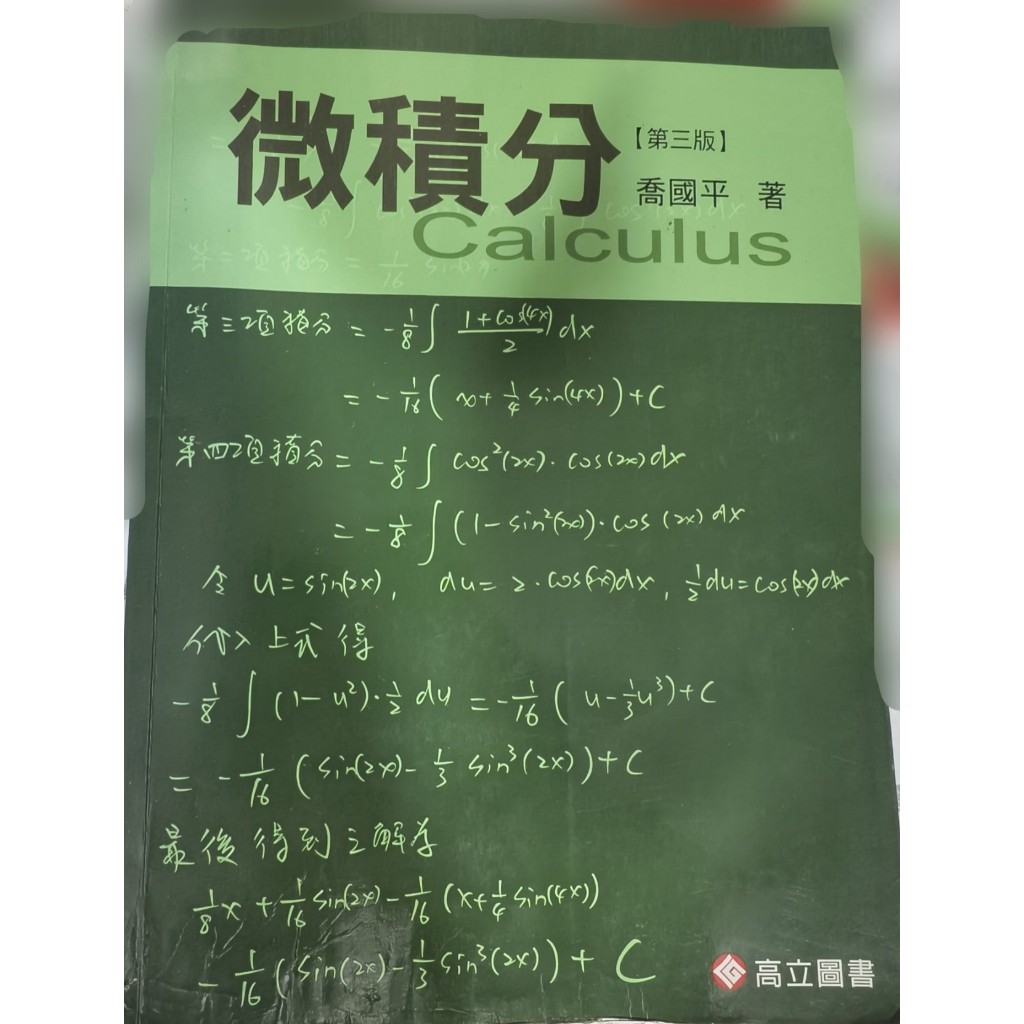 微積分
【第三版】
喬國平 著
Calculus
第二項積分 = 1/16 sin(2x)
第三項積分 = -1/8 ∫ (1+cos(4x))/2 dx
= -1/16 ( x + 1/4 sin(4x) ) + C
第四項積分 = -1/8 ∫ cos²(2x)·cos(2x)dx
= -1/8 ∫ (1-sin²(2x))·cos(2x)dx
令 u=sin(2x), du=2·cos(2x)dx, 1/2 du=cos(2x)dx
代入上式得
-1/8 ∫ (1-u²)·1/2 du = -1/16 ( u - 1/3 u³ ) + C
= -1/16 ( sin(2x) - 1/3 sin³(2x) ) + C
最後得到之解為
1/8 x + 1/16 sin(2x) - 1/16 (x + 1/4 sin(4x))
- 1/16 ( sin(2x) - 1/3 sin³(2x) ) + C
高立圖書